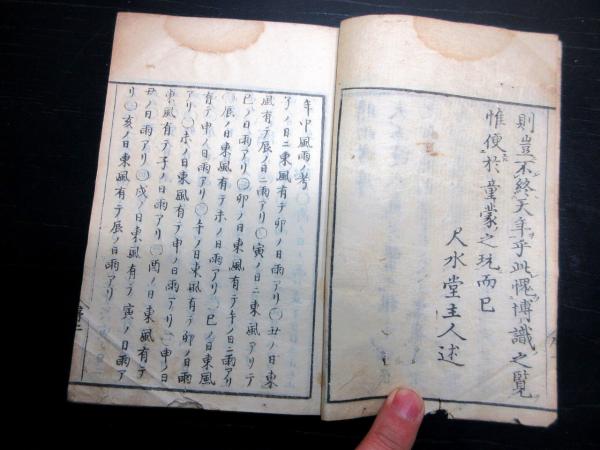 則豈不終天年乎此愧博識之覧
惟便於童蒙之玩而已
尺水堂主人述
年中風雨ノ考
子ノ日ニ東風有テ卯ノ日雨アリ〇丑ノ日東
風有テ辰ノ日ニ雨アリ〇寅ノ日ニ東風アリテ
巳ノ日雨アリ〇卯ノ日東風有テ午ノ日ニ雨アリ
〇辰ノ日東風有テ未ノ日雨アリ〇巳ノ日東風
有テ申ノ日雨アリ〇午ノ日東風有テ卯ノ日雨
アリ〇未ノ日東風有テ申ノ日雨アリ〇申ノ日
東風有テ子ノ日雨アリ〇酉ノ日東風有テ
丑ノ日雨アリ〇戌ノ日東風有テ寅ノ日雨ア
リ〇亥ノ日東風有テ辰ノ日雨アリ